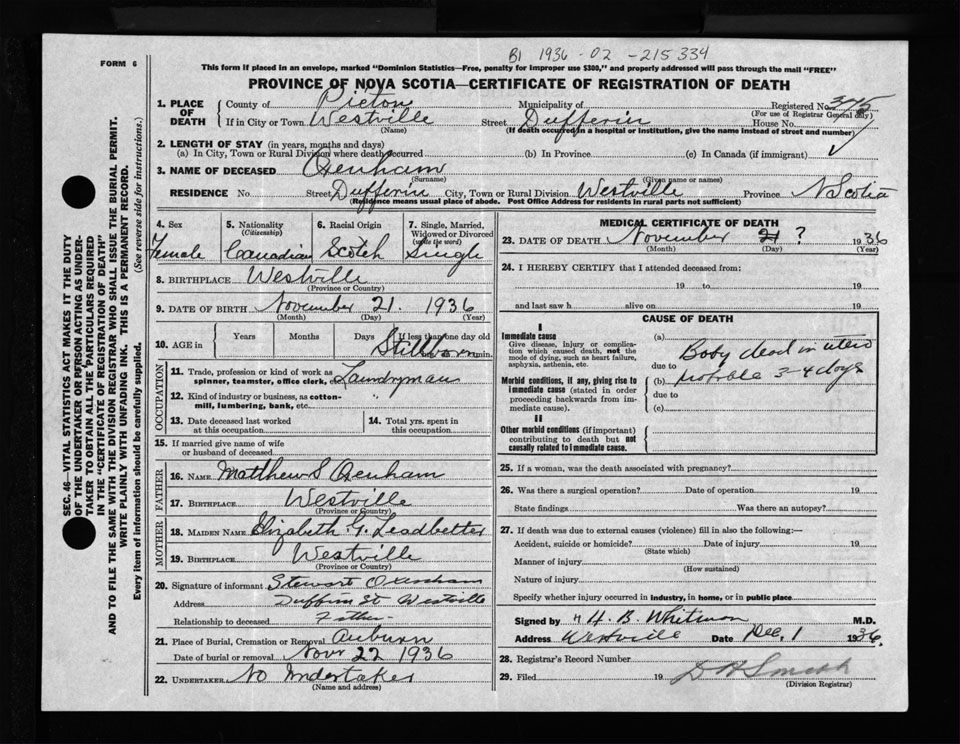 B1 1936-02-215334
FORM 6
This form if placed in an envelope, marked "Dominion Statistics—Free, penalty for improper use $300," and properly addressed will pass through the mail "FREE"
PROVINCE OF NOVA SCOTIA—CERTIFICATE OF REGISTRATION OF DEATH
1. PLACE OF DEATH { County of Pictou Municipality of Registered No. 375
(For use of Registrar General only)
If in City or Town Westville Street Dufferin House No.
(Name) (If death occurred in a hospital or institution, give the name instead of street and number)
2. LENGTH OF STAY (in years, months and days)
(a) In City, Town or Rural Division where death occurred (b) In Province (c) In Canada (if immigrant)
3. NAME OF DECEASED Oenham
(Surname) (Given name or names)
RESIDENCE No. Street Dufferin City, Town or Rural Division Westville Province N Scotia
(Residence means usual place of abode. Post Office Address for residents in rural parts not sufficient)
4. Sex 5. Nationality (Citizenship) 6. Racial Origin 7. Single, Married, Widowed or Divorced (write the word)
Female Canadian Scotch Single
8. BIRTHPLACE Westville
(Province or Country)
9. DATE OF BIRTH November 21. 1936
(Month) (Day) (Year)
10. AGE in Years Months Days If less than one day old
Stillborn min.
OCCUPATION
11. Trade, profession or kind of work as spinner, teamster, office clerk, etc. Laundryman
12. Kind of industry or business, as cotton-mill, lumbering, bank, etc. "
13. Date deceased last worked at this occupation
14. Total yrs. spent in this occupation
15. If married give name of wife or husband of deceased
FATHER
16. NAME Matthew S Oenham
17. BIRTHPLACE Westville
(Province or Country)
MOTHER
18. MAIDEN NAME Elizabeth G. Leadbetter
19. BIRTHPLACE Westville
(Province or Country)
20. Signature of informant Stewart Oxenham
Address Dufferin St Westville
Relationship to deceased Father
21. Place of Burial, Cremation or Removal Auburn
Date of burial or removal Novr 22 1936
22. UNDERTAKER No Undertaker
(Name and address)
MEDICAL CERTIFICATE OF DEATH
23. DATE OF DEATH November 21 ? 1936
(Month) (Day) (Year)
24. I HEREBY CERTIFY that I attended deceased from:
19 to 19
and last saw h alive on 19
CAUSE OF DEATH
I
Immediate cause
Give disease, injury or complication which caused death, not the mode of dying, such as heart failure, asphyxia, asthenia, etc.
Morbid conditions, if any, giving rise to immediate cause (stated in order proceeding backwards from immediate cause).
II
Other morbid conditions (if important) contributing to death but not causally related to immediate cause.
(a) Body dead in utero
due to
(b) probable 3-4 days
due to
(c)
25. If a woman, was the death associated with pregnancy?
26. Was there a surgical operation? Date of operation 19
State findings Was there an autopsy?
27. If death was due to external causes (violence) fill in also the following:—
Accident, suicide or homicide? Date of injury 19
(State which)
Manner of injury
(How sustained)
Nature of injury
Specify whether injury occurred in industry, in home, or in public place
Signed by H. B. Whitman M.D.
Address Westville Date Dec, 1 1936.
28. Registrar's Record Number
29. Filed 19 D H Smith
(Division Registrar)
SEC. 46—VITAL STATISTICS ACT MAKES IT THE DUTY
OF THE UNDERTAKER OR PERSON ACTING AS UNDER-
TAKER TO OBTAIN ALL THE PARTICULARS REQUIRED
IN THE "CERTIFICATE OF REGISTRATION OF DEATH"
AND TO FILE THE SAME WITH THE DIVISION REGISTRAR WHO SHALL ISSUE THE BURIAL PERMIT.
WRITE PLAINLY WITH UNFADING INK. THIS IS A PERMANENT RECORD.
Every item of information should be carefully supplied. (See reverse side for instructions.)